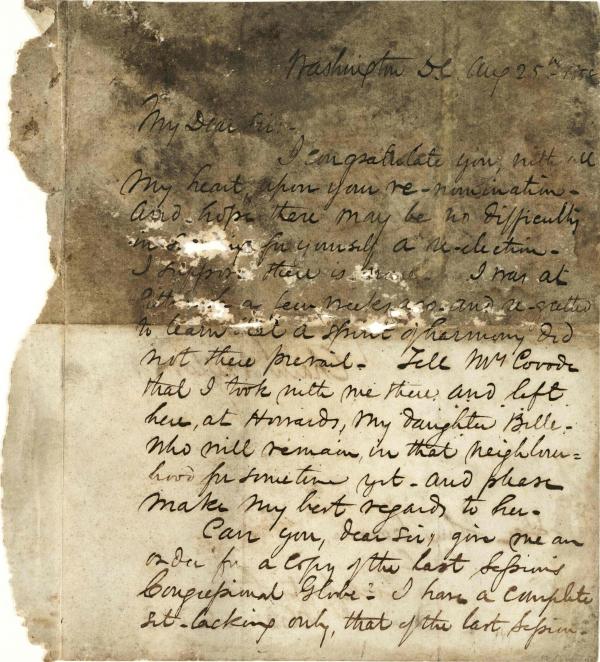 Washington DC Aug 25th
My Dear Sir-
I congratulate you, with all
my heart, upon your re-nomination-
And hope there may be no difficulty
in for yourself a re-election-
I suppose there is none. I was at
a few weeks ago- and regretted
to learn that a spirit of harmony did
not there prevail- Tell Mrs Covode
that I took with me there, and left
here, at Howards, my daughter Belle-
who will remain, in that neighbour=
hood for some time yet- and please
make my best regards to her-
Can you, dear Sir, give me an
order for a copy of the last Session's
Congressional Globe? I have a complete
set- lacking only, that of the last, Session-